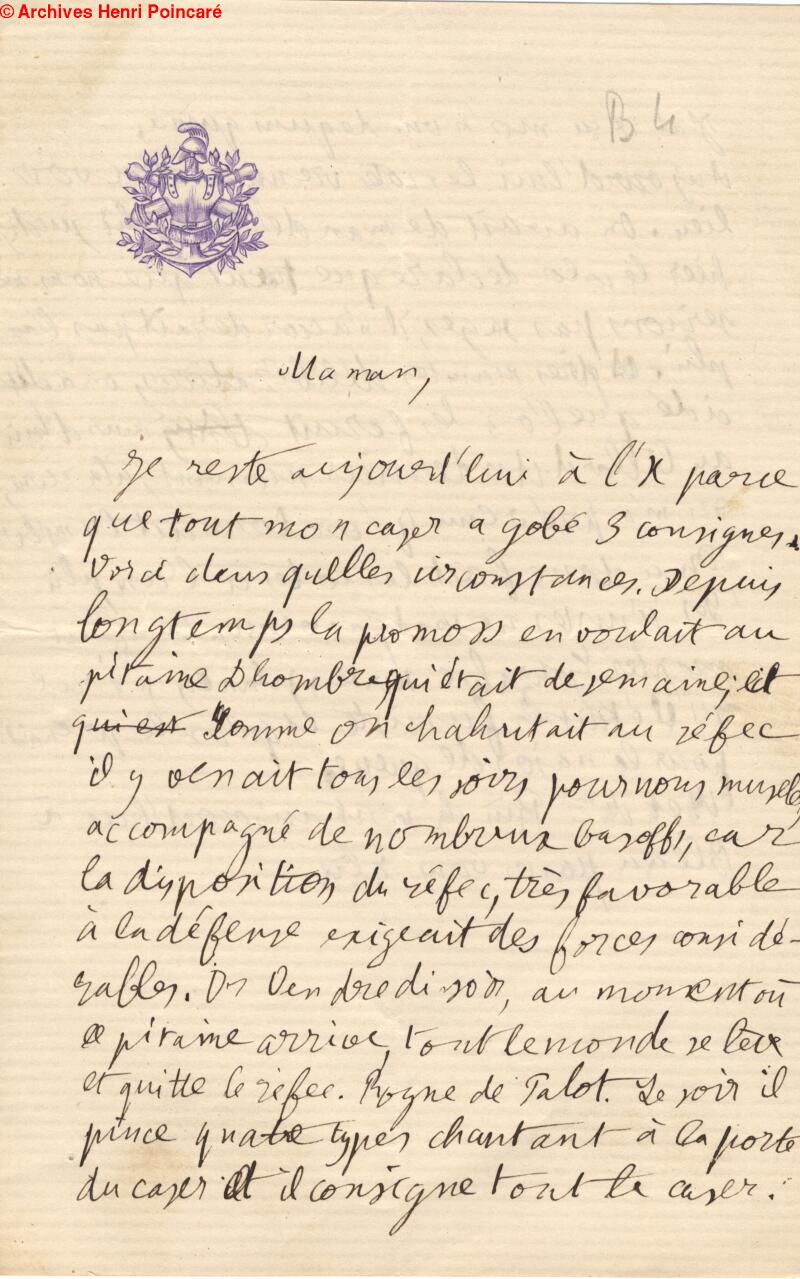 © Archives Henri Poincaré
B 4
Maman,
Je reste aujourd'hui à l'X parce
que tout mon caser a gobé 3 consignes.
Voici dans quelles circonstances. Depuis
longtemps la promoss en voulait au
pitaine Dhombre qui était de semaine; et
qui est comme on chahutait au réfec
il y venait tous les soirs pour nous museler
accompagné de nombreux basoffs, car
la disposition du réfec, très favorable
à la défense exigeait des forces considé-
rables. Or Vendredi soir, au moment où
le pitaine arrive, tout le monde se lève
et quitte le réfec. Rogne de Talot. Le soir il
pince quatre types chantant à la porte
du caser et il consigne tout le caser.